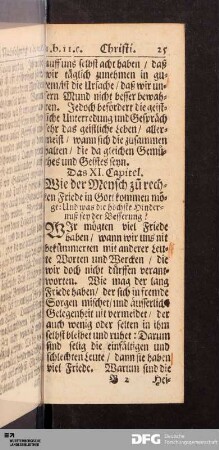 1.b.11.c. Christi. 25
auff uns selbst acht haben / daß
wir täglich zunehmen in gu-
tem / ist die Ursache / daß wir un-
sern Mund nicht besser bewah-
ren. Jedoch befordert die geist-
liche Unterredung und Gespräch
sehr das geistliche leben / aller-
meist / wann sich die zusammen
halten / die da gleichen Gemü-
thes und Geistes seyn.
Das XI. Capitel.
Wie der Mensch zu rech-
ten Friede in Gott kommen mö-
ge: Und was die höchste Hinder-
nuß sey der Besserung?
WIr mögten viel Friede
haben / wann wir uns nit
bekümmerten mit anderer Leu-
te Worten und Wercken / die
wir doch nicht dürffen verant-
worten. Wie mag der lang
Friede haben / der sich in fremde
Sorgen mischet / und äusserliche
Gelegenheit nit vermeidet / der
auch wenig oder selten in ihm
selbst bleibet und ruhet: Darum
sind selig die einfältigen und
schlechten Leute / dann sie haben
viel Friede. Warum sind die
B 2 Hei-
DFG Deutsche
Forschungsgemeinschaft